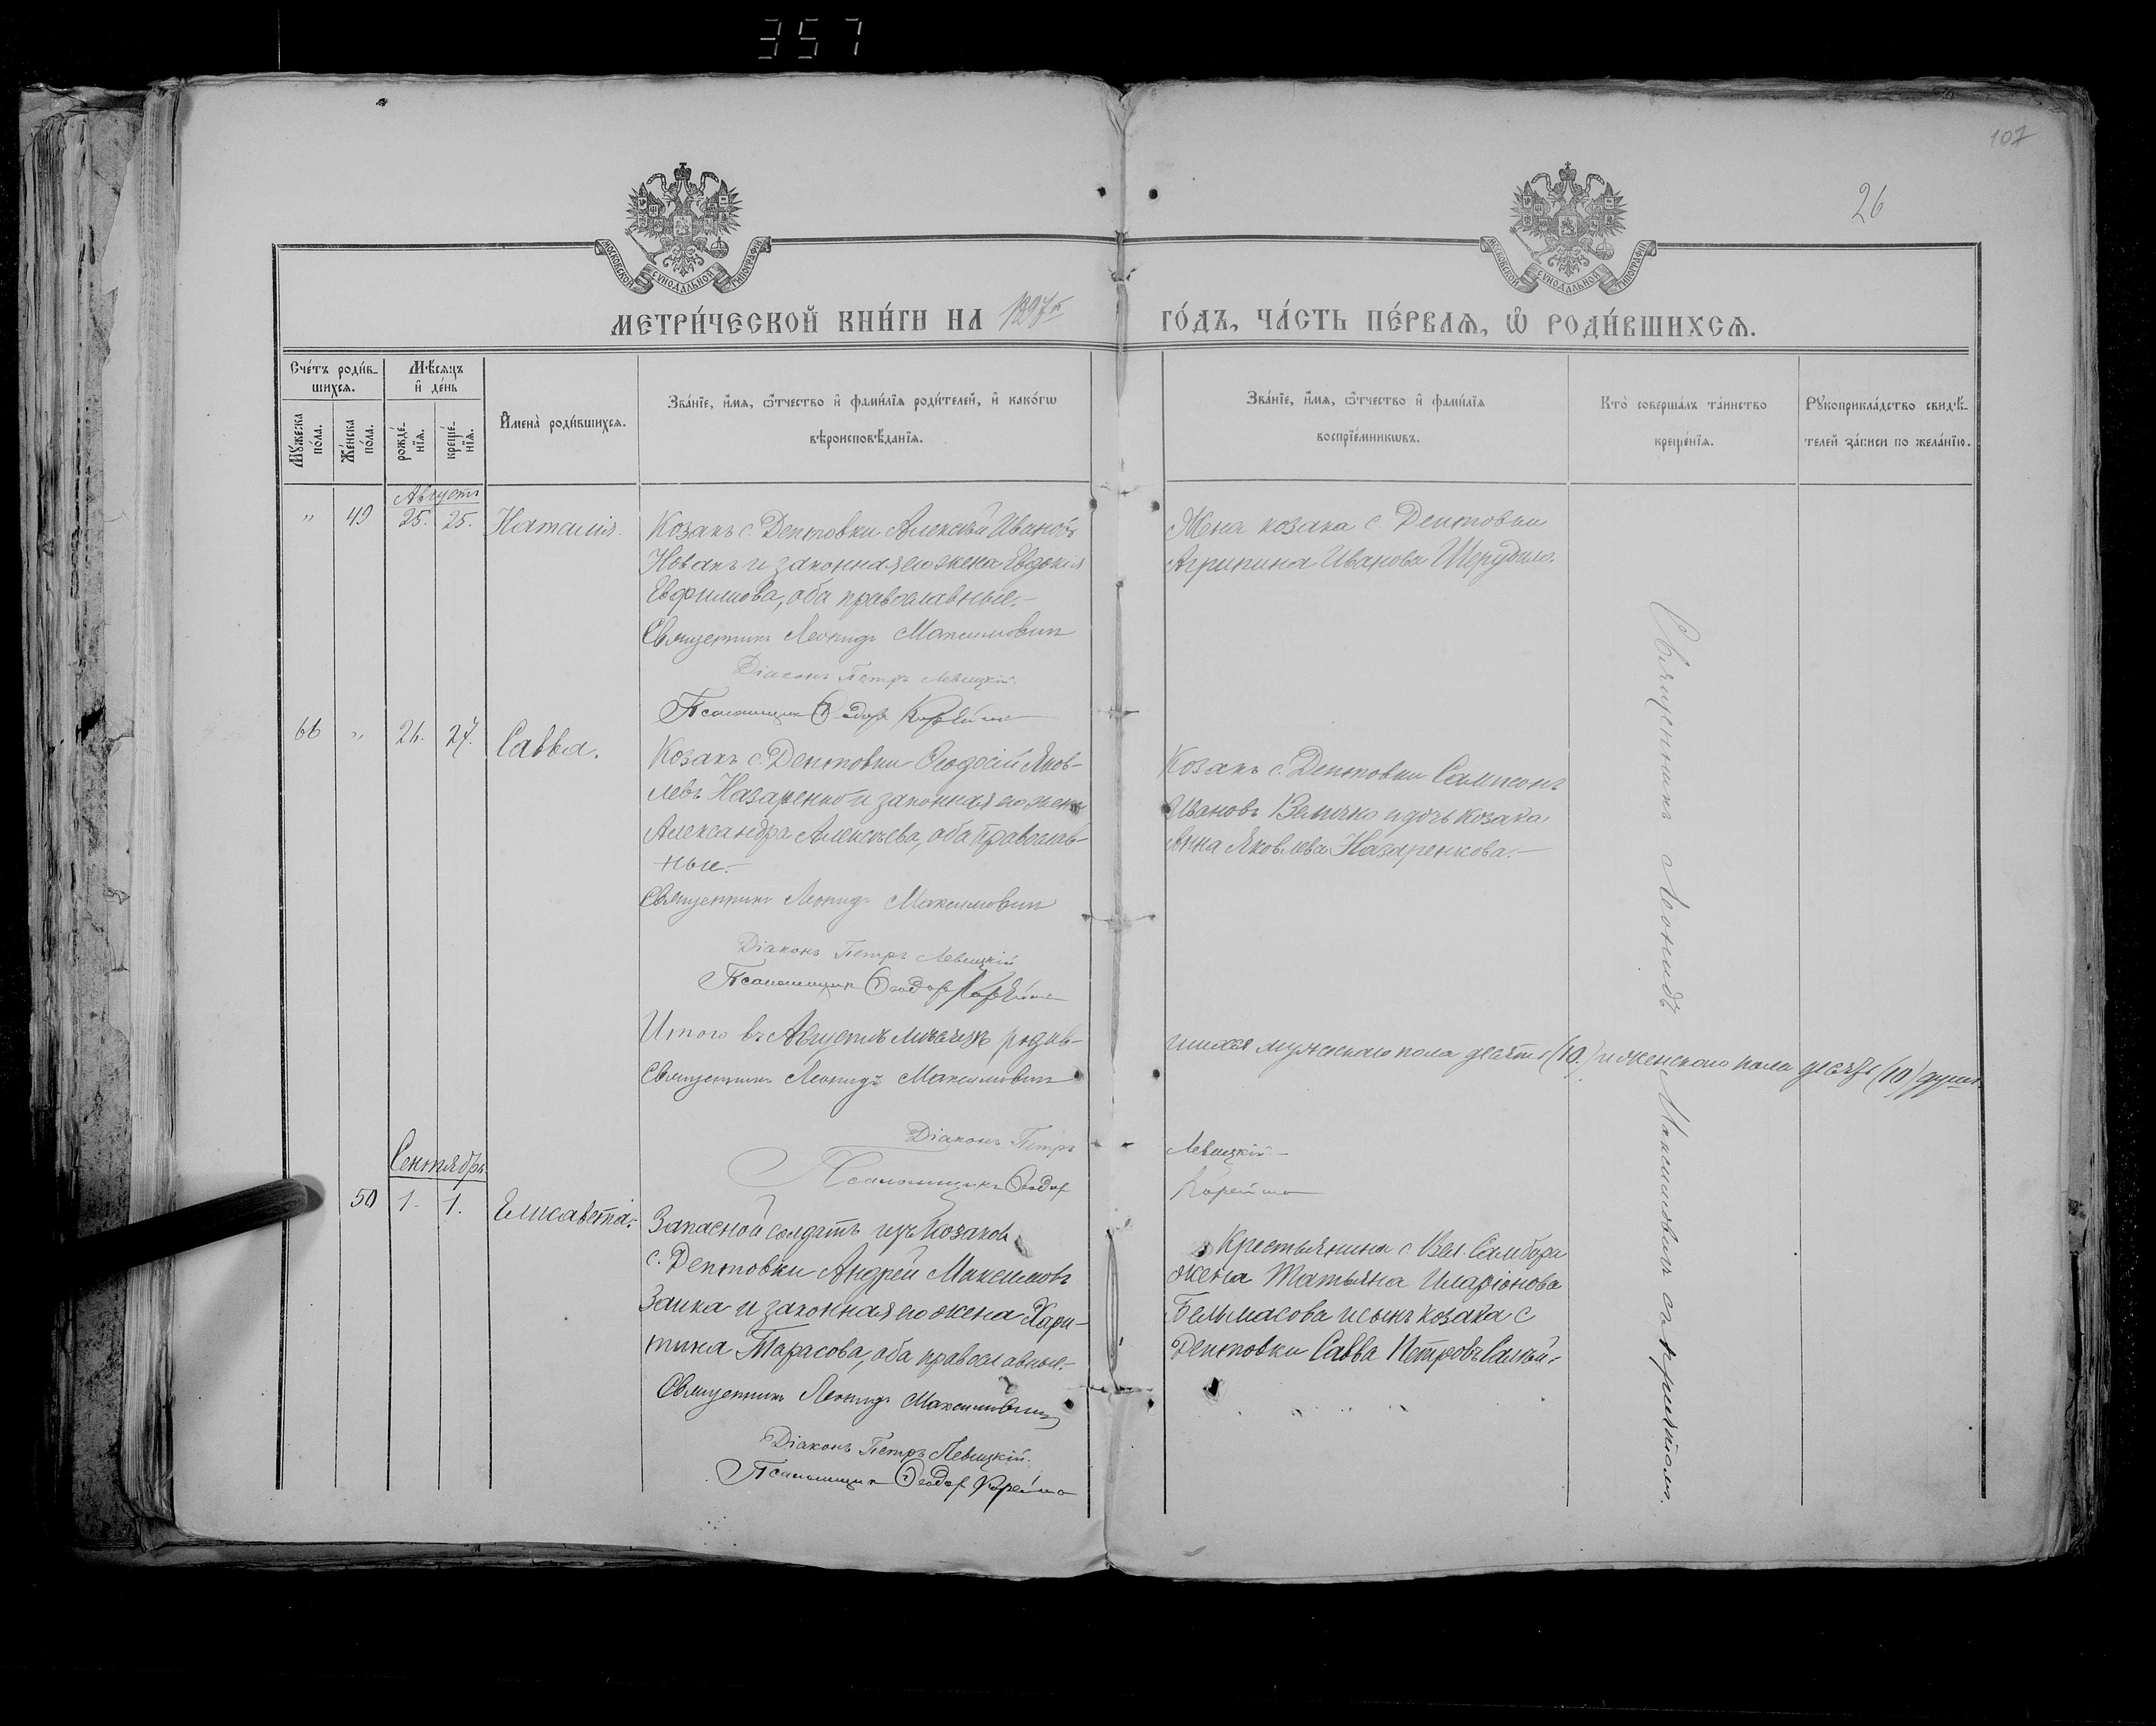 357
107
26
МОСКОВСКОЙ СѴНОДАЛЬНОЙ ТИПОГРАФІИ
МОСКОВСКОЙ СѴНОДАЛЬНОЙ ТИПОГРАФІИ
МЕТРИ́ЧЕСКОЙ КНИ́ГИ НА 1897й ГО́ДЪ, ЧА́СТЬ ПЕ́РВАѦ, Ѡ҆ РОДИ́ВШИХСѦ.
Сче́тъ роди́в-
шихсѧ.
Мѣ́сѧцъ
и҆ де́нь
Мꙋ́жеска
по́ла.
Же́нска
по́ла.
рожде́-
нїѧ.
креще́-
нїѧ.
И҆мена̀ роди́вшихсѧ.
Зва́нїе, и҆́мѧ, ѻ҆́тчество и҆ фами́лїѧ роди́телей, и҆ како́гѡ
вѣроисповѣ́данїѧ.
Зва́нїе, и҆́мѧ, ѻ҆́тчество и҆ фами́лїѧ
воспрїе́мникѡвъ.
Кто̀ соверша́лъ та́инство
креще́нїѧ.
Рꙋкоприкла́дство свидѣ́-
телей за́писи по жела́нїю.
Августъ
" 49 25. 25. Наталія.
Козакъ с. Дептовки Алексѣй Ивановъ
Новакъ и законная его жена Евдокія
Евфимова, оба православные.-
Священникъ Леонидъ Максимовичъ
Діаконъ Петръ Левицкій.
Псаломщикъ Ѳеодоръ Корейша
Жена козака с. Дептовки
Агрипина Иванова Шерудило.
66 " 26. 27. Савва.
Козакъ с. Дептовки Ѳеодосій Яков-
левъ Назаренко и законная его жена
Александра Алексѣева, оба православ-
ные.-
Священникъ Леонидъ Максимовичъ
Діаконъ Петръ Левицкій
Псаломщикъ Ѳеодоръ Корейша
Козакъ с. Дептовки Сампсонъ
Ивановъ Величко и дочь козака
Анна Яковлева Назаренкова.-
Итого въ Августѣ мѣсяцѣ родив-
шихся мужескаго пола десять (10.) и женскаго пола десять (10) душъ.
Священникъ Леонидъ Максимовичъ
Діаконъ Петръ Левицкій-
Псаломщикъ Ѳеодоръ Корейша
Сентябрь.
50 1. 1. Елисавета.
Запасной солдатъ изъ козаковъ
с. Дептовки Андрей Максимовъ
Заика и законная его жена Хари-
тина Тарасова, оба православные.-
Священникъ Леонидъ Максимовичъ
Діаконъ Петръ Левицкій.
Псаломщикъ Ѳеодоръ Корейша
Крестьянина с. Вел. Самбура
жена Татьяна Иларіонова
Бельмасова и сынъ козака с
Дептовки Савва Петровъ
Священникъ Леонидъ Максимовичъ съ причтомъ.